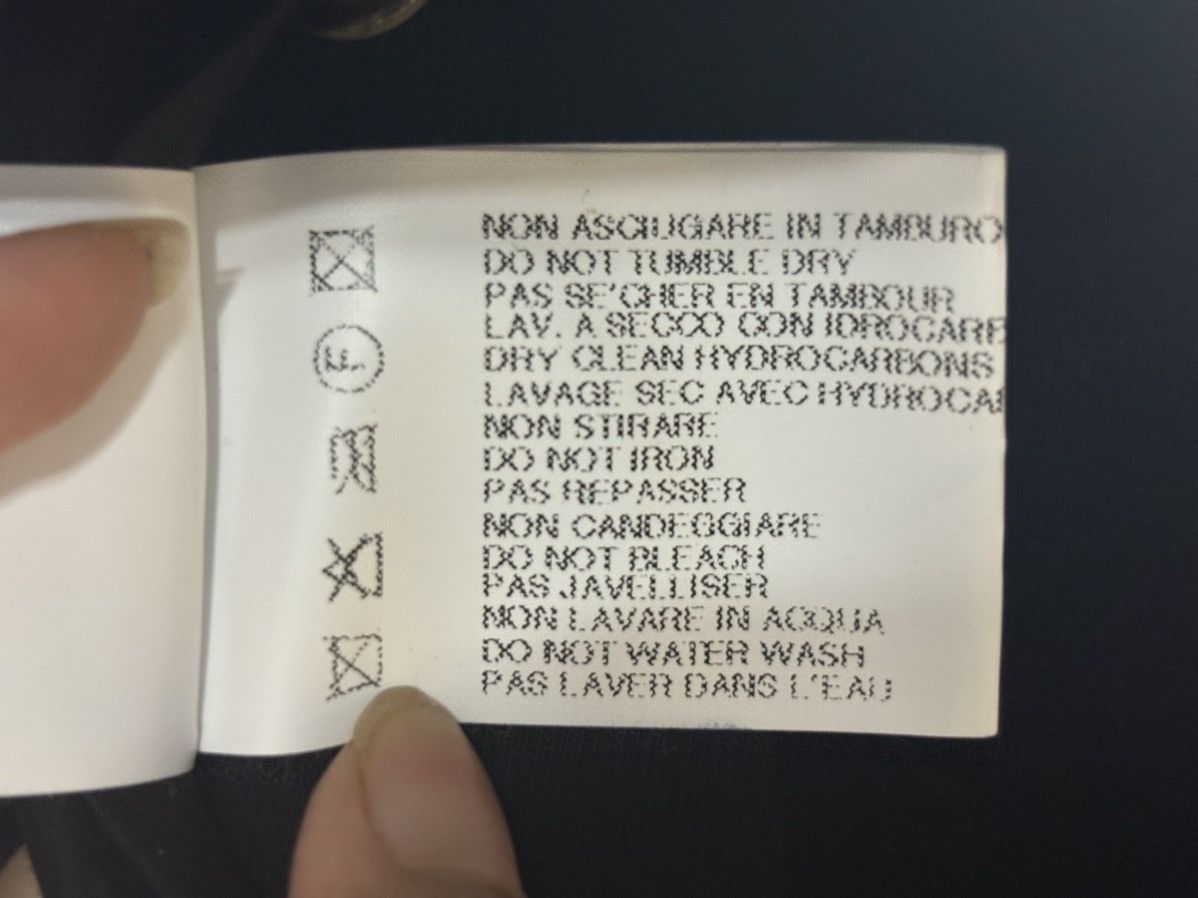 NON ASCIUGARE IN TAMBURO
DO NOT TUMBLE DRY
PAS SE'CHER EN TAMBOUR
LAV. A SECCO CON IDROCARB
DRY CLEAN HYDROCARBONS
LAVAGE SEC AVEC HYDROCA
F
NON STIRARE
DO NOT IRON
PAS REPASSER
NON CANDEGGIARE
DO NOT BLEACH
PAS JAVELLISER
NON LAVARE IN ACQUA
DO NOT WATER WASH
PAS LAVER DANS L'EAU